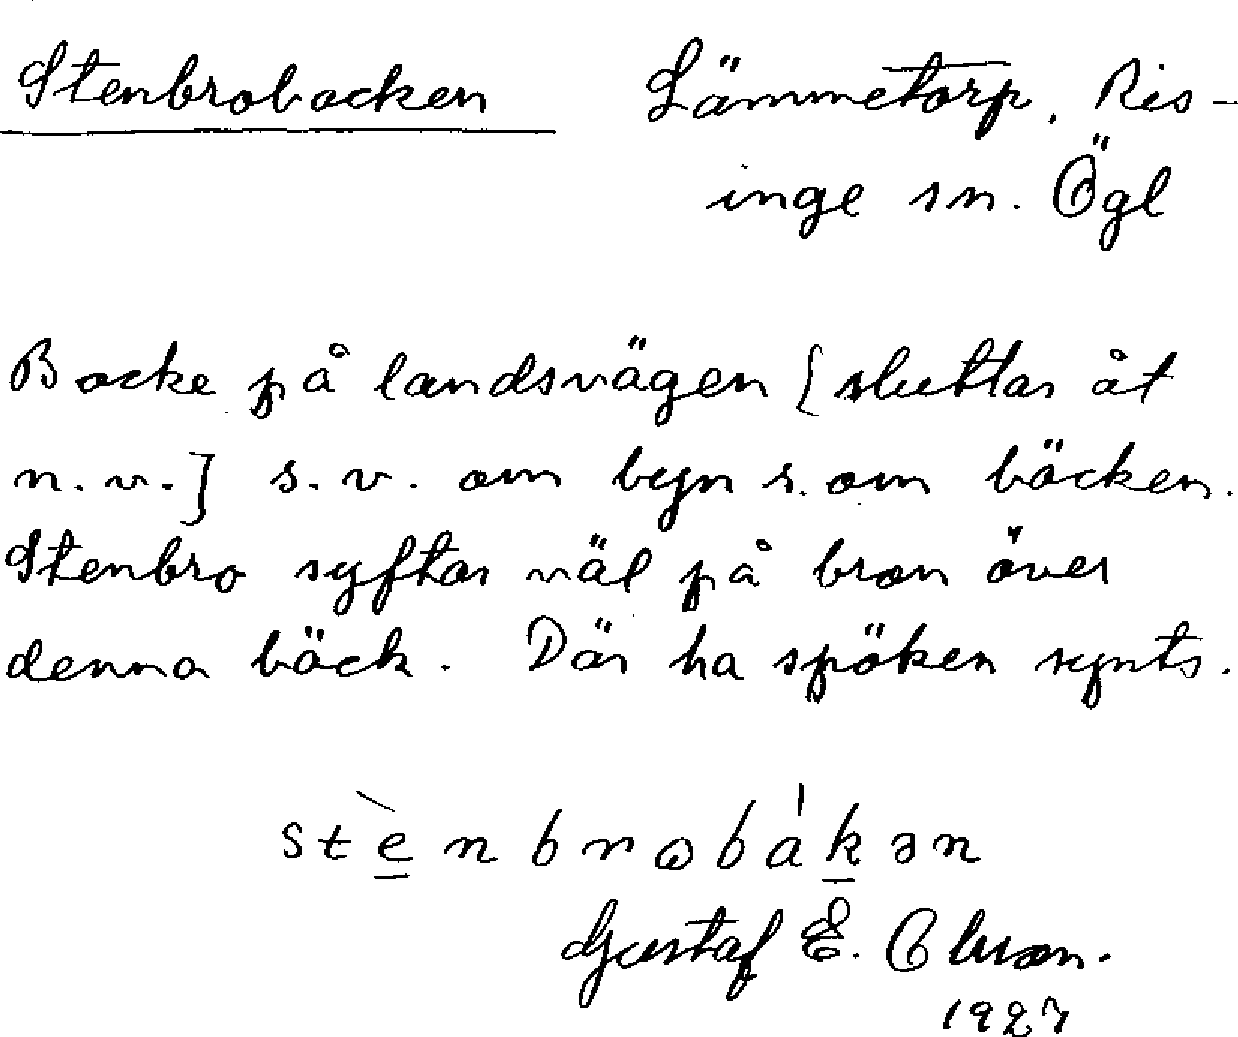 Stenbrobacken Lämmetorp, Ris-
inge sn. Ögl
Backe på landsvägen [sluttar åt
n.v.] s.v. om byn s. om bäcken.
Stenbro syftar väl på bron över
denna bäck. Där ha spöken synts.
stè̱nbrωbáḵən
Gustaf E. Olsson.
1927